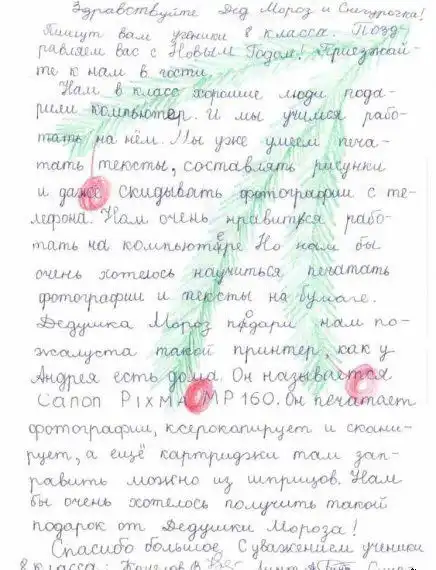 Здравствуйте Дед Мороз и Снегурочка!
Пишут вам ученики 8 класса. Позд-
равляем вас с Новым Годом! Приезжай-
те к нам в гости.
Нам в класс хорошие люди пода-
рили компьютер. И мы учимся рабо-
тать на нём. Мы уже умеем печа-
тать тексты, составлять рисунки
и даже скидывать фотографии с те-
лефона. Нам очень нравиться рабо-
тать на компьютере. Но нам бы
очень хотелось научиться печатать
фотографии и тексты на бумаге.
Дедушка Мороз подари нам по-
жалуста такой принтер, как у
Андрея есть дома. Он называется
Canon PIXMA MP 160. Он печатает
фотографии, ксерокапирует и скани-
рует, а ещё картриджи там зап-
равить можно из шприцов. Нам
бы очень хотелось получить такой
подарок от Дедушки Мороза!
Спасибо большое. С уважением ученики
8 класса: